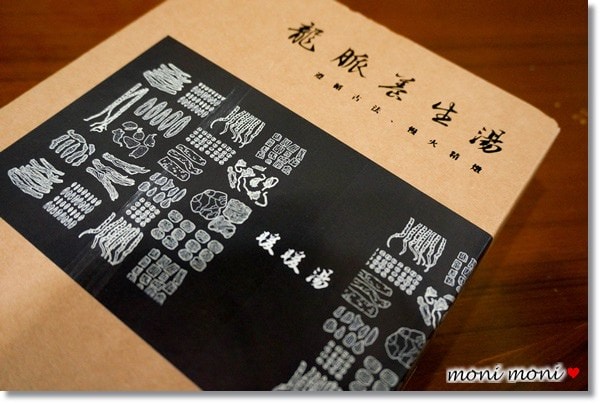 龍脈養生湯
遵循古法、慢火精燉
暖暖湯
moni moni